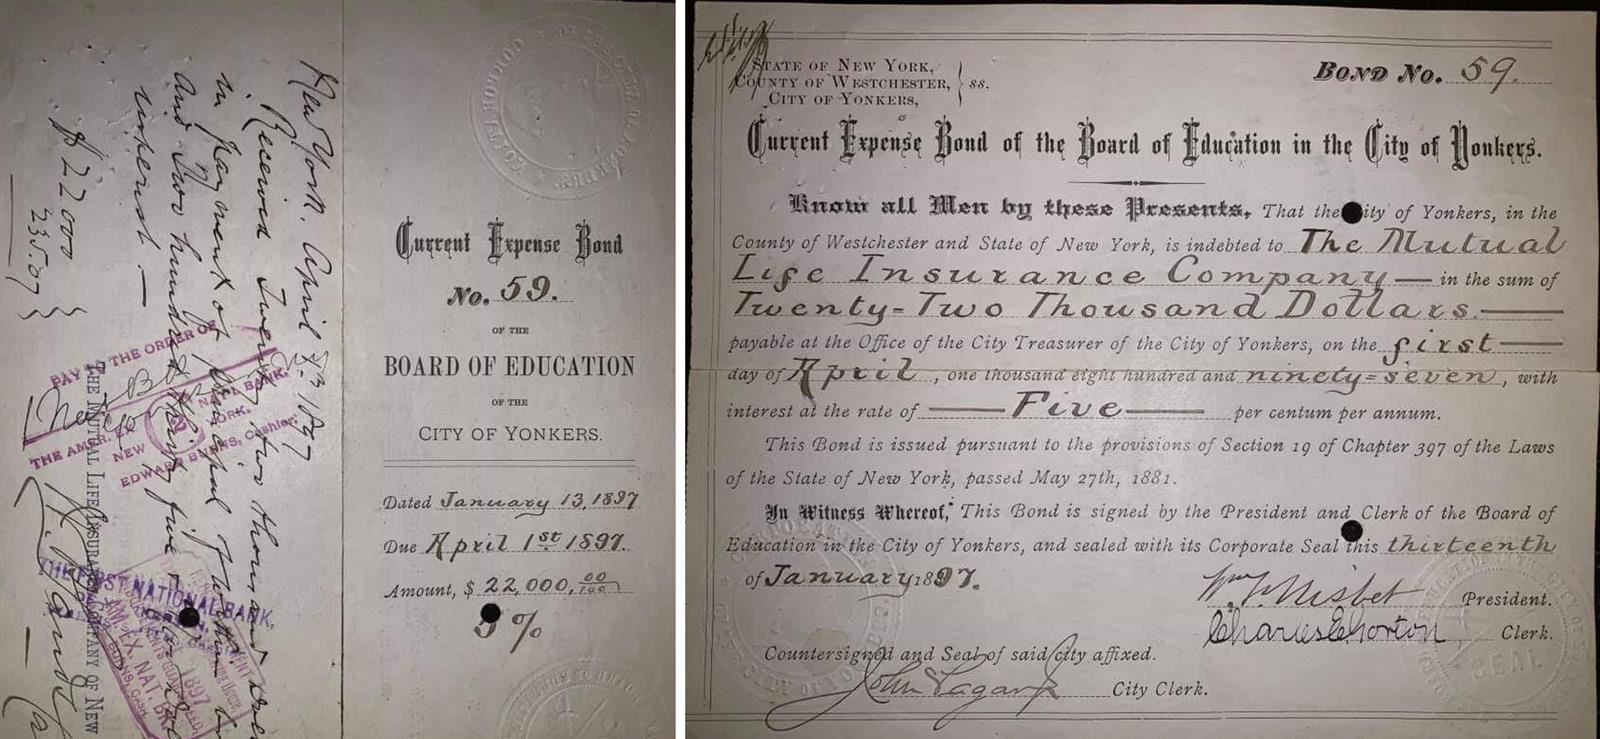 New York. April 3. 1897
Received Twenty two thousand dollars
in payment of principal of within bond
and Two hundred thirty five &
interest.—
$22000
235.07
PAY TO THE ORDER OF
NAT'L BANK.
THE AMER. EX
NEW YORK.
EDWARD BURNS, Cashier.
THE MUTUAL LIFE INSURANCE COMPANY OF NEW
THE FIRST NATIONAL BANK,
1897
AM. EX. NAT. BK
Current Expense Bond
No. 59.
OF THE
BOARD OF EDUCATION
OF THE
CITY OF YONKERS.
Dated January 13, 1897
Due April 1st 1897.
Amount, $ 22,000, 00/100
5%
STATE OF NEW YORK,
COUNTY OF WESTCHESTER, } ss.
CITY OF YONKERS,
BOND No. 59.
Current Expense Bond of the Board of Education in the City of Yonkers.
Know all Men by these Presents, That the City of Yonkers, in the
County of Westchester and State of New York, is indebted to The Mutual
Life Insurance Company — in the sum of
Twenty=Two Thousand Dollars. —
payable at the Office of the City Treasurer of the City of Yonkers, on the first —
day of April, one thousand eight hundred and ninety=seven, with
interest at the rate of — Five — per centum per annum.
This Bond is issued pursuant to the provisions of Section 19 of Chapter 397 of the Laws
of the State of New York, passed May 27th, 1881.
In Witness Whereof, This Bond is signed by the President and Clerk of the Board of
Education in the City of Yonkers, and sealed with its Corporate Seal this thirteenth
of January 1897.
Wm. F. Nisbet President.
Charles E. Gorton Clerk.
Countersigned and Seal of said city affixed.
John Pagan Jr City Clerk.
SEAL